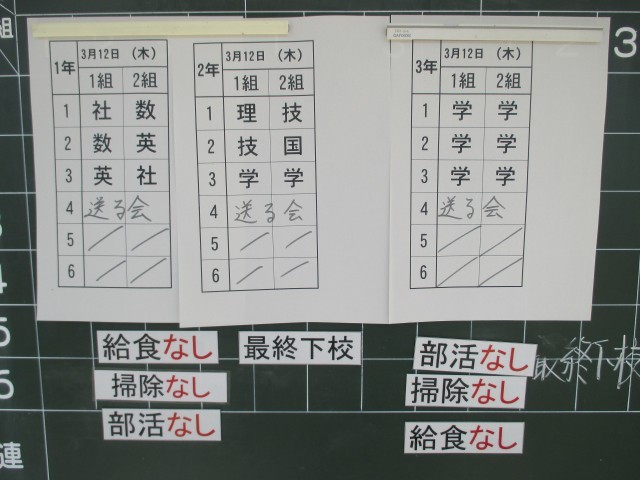 組
1年 3月12日 (木)
1組 2組
1 社 数
2 数 英
3 英 社
4 送る会
5
6
2年 3月12日 (木)
1組 2組
1 理 技
2 技 国
3 学 学
4 送る会
5
6
3年 3月12日 (木)
1組 2組
1 学 学
2 学 学
3 学 学
4 送る会
5
6
3
5
連
給食なし
掃除なし
部活なし
最終下校
部活なし
掃除なし
給食なし
最終下校